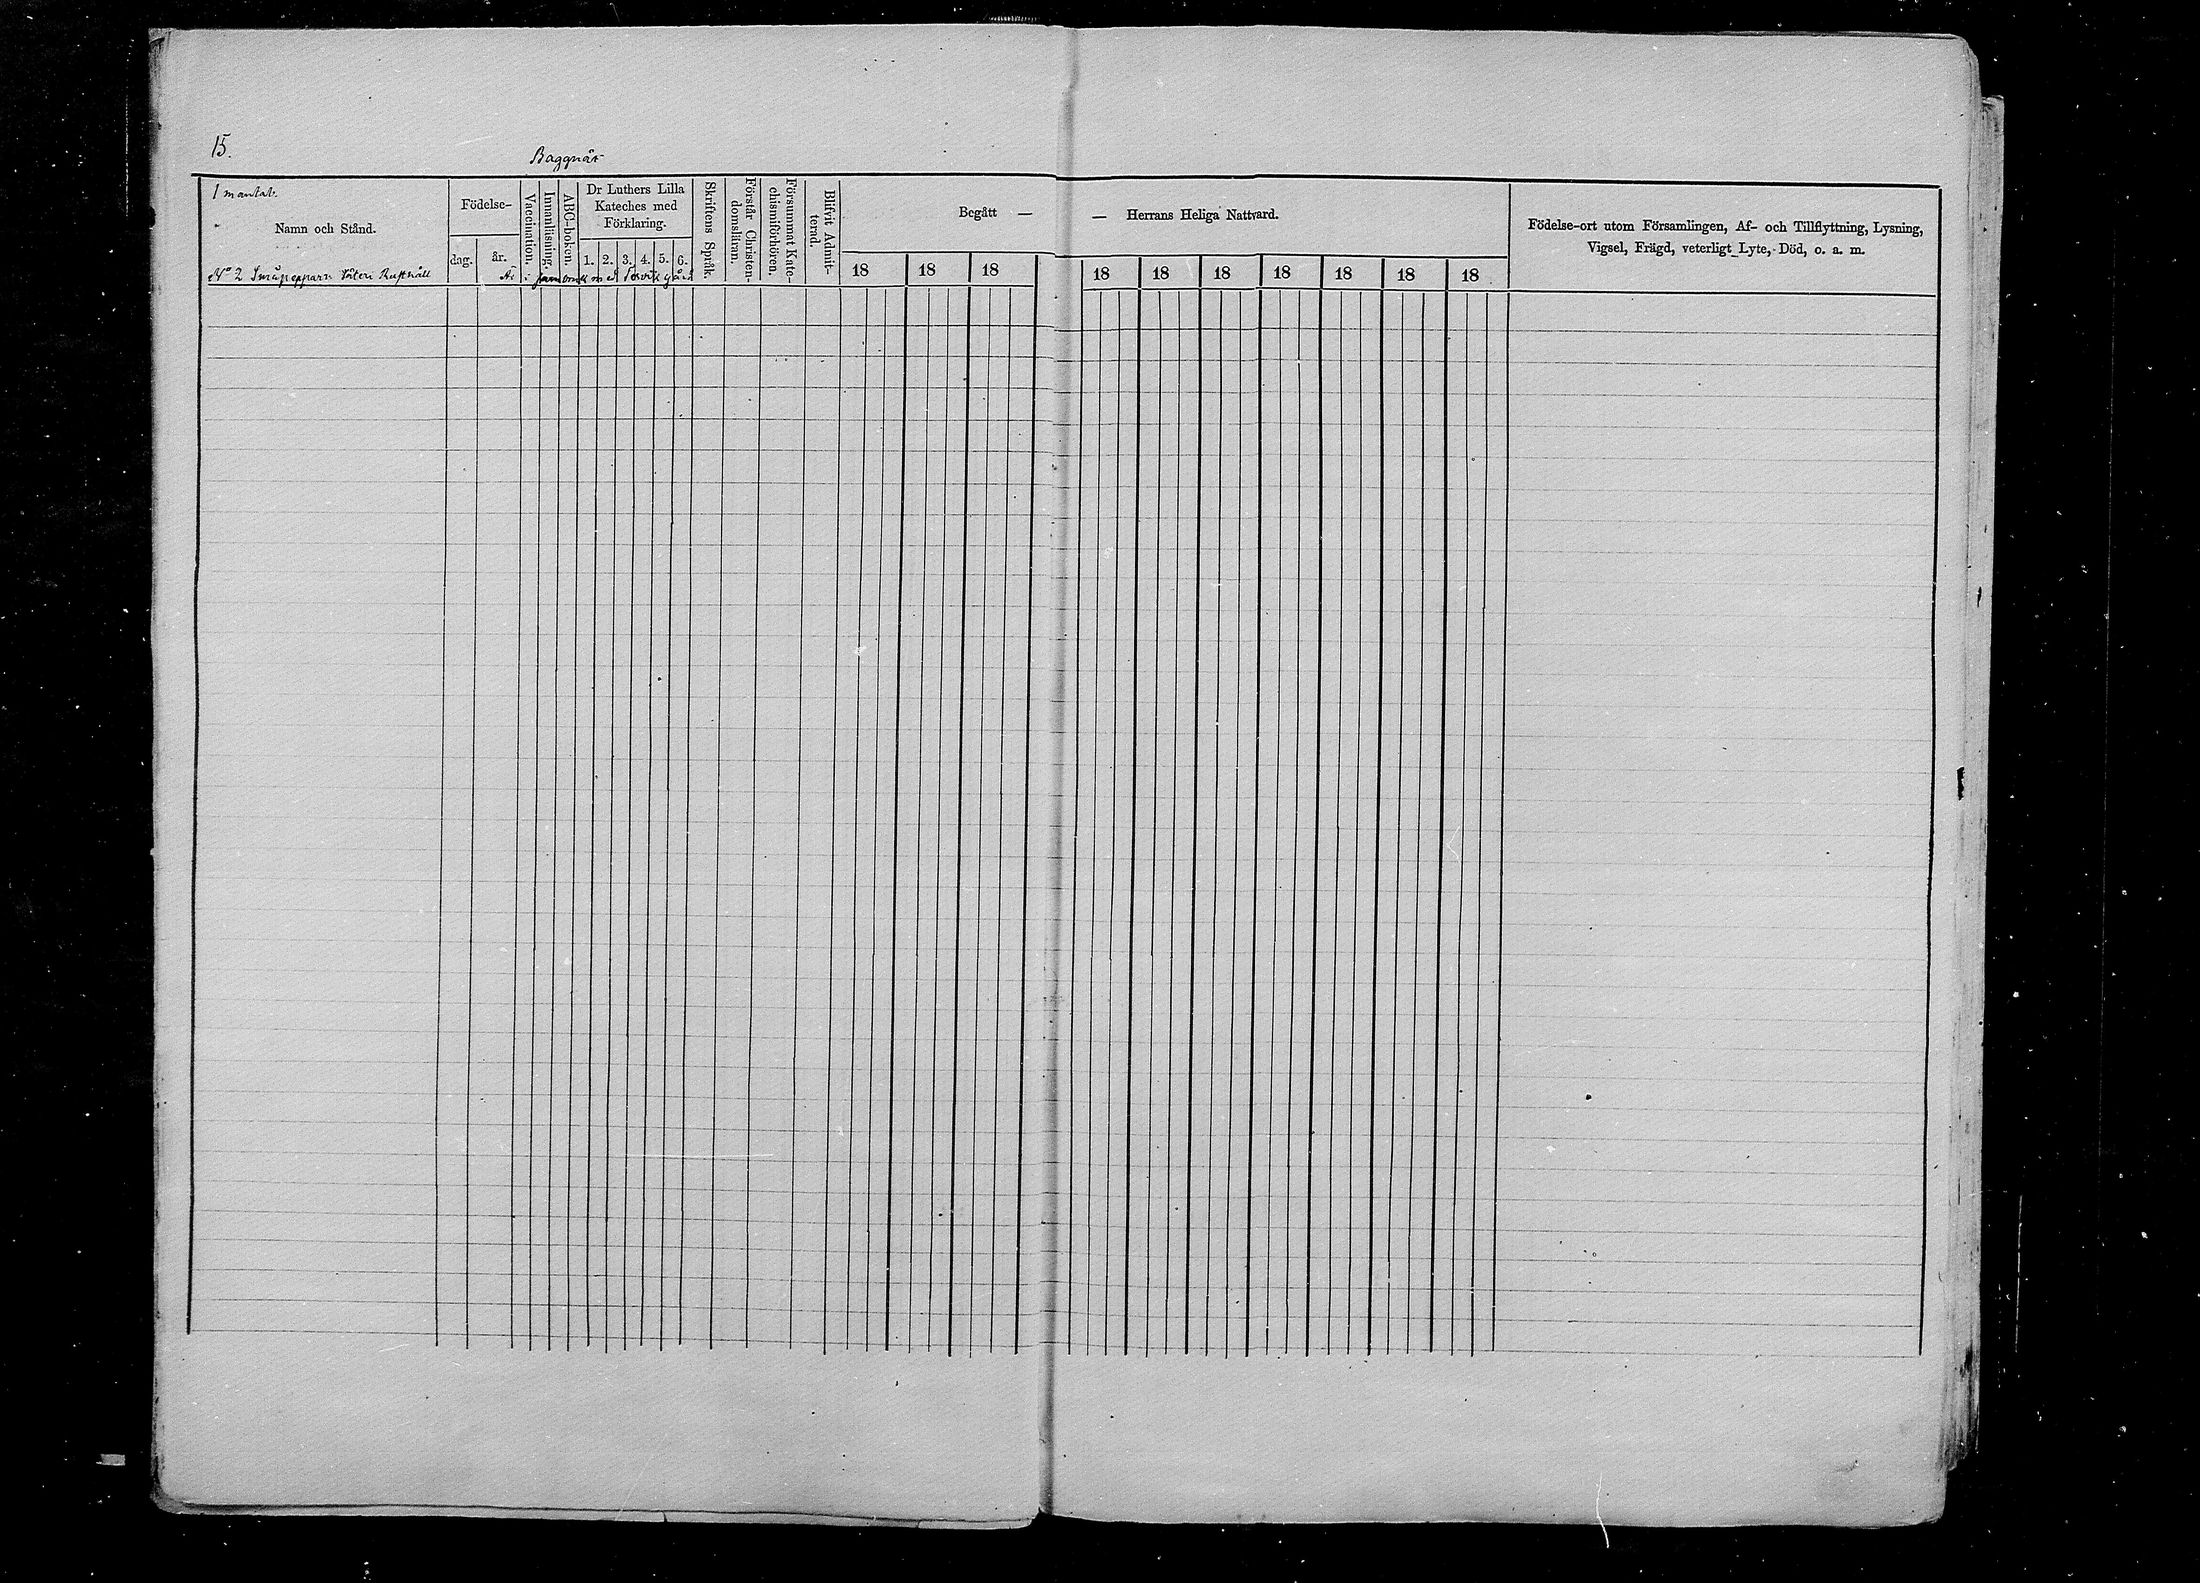 15.
Baggnäs
1 mantal.
Namn och Stånd.
Födelse-
dag.
år.
Vaccination.
Innanläsning.
ABC-boken.
Dr Luthers Lilla
Kateches med
Förklaring.
1. 2. 3. 4. 5. 6.
Skriftens Språk.
Förstår Christen-
domsläran.
Försummat Kate-
chismiförhören.
Blifvit Admit-
terad.
Begått —
— Herrans Heliga Nattvard.
18 18 18 18 18 18 18 18 18 18
Födelse-ort utom Församlingen, Af- och Tillflyttning, Lysning,
Vigsel, Frägd, veterligt Lyte, Död, o. a. m.
No 2 Säteri Rusthåll Är i sambruk med gård